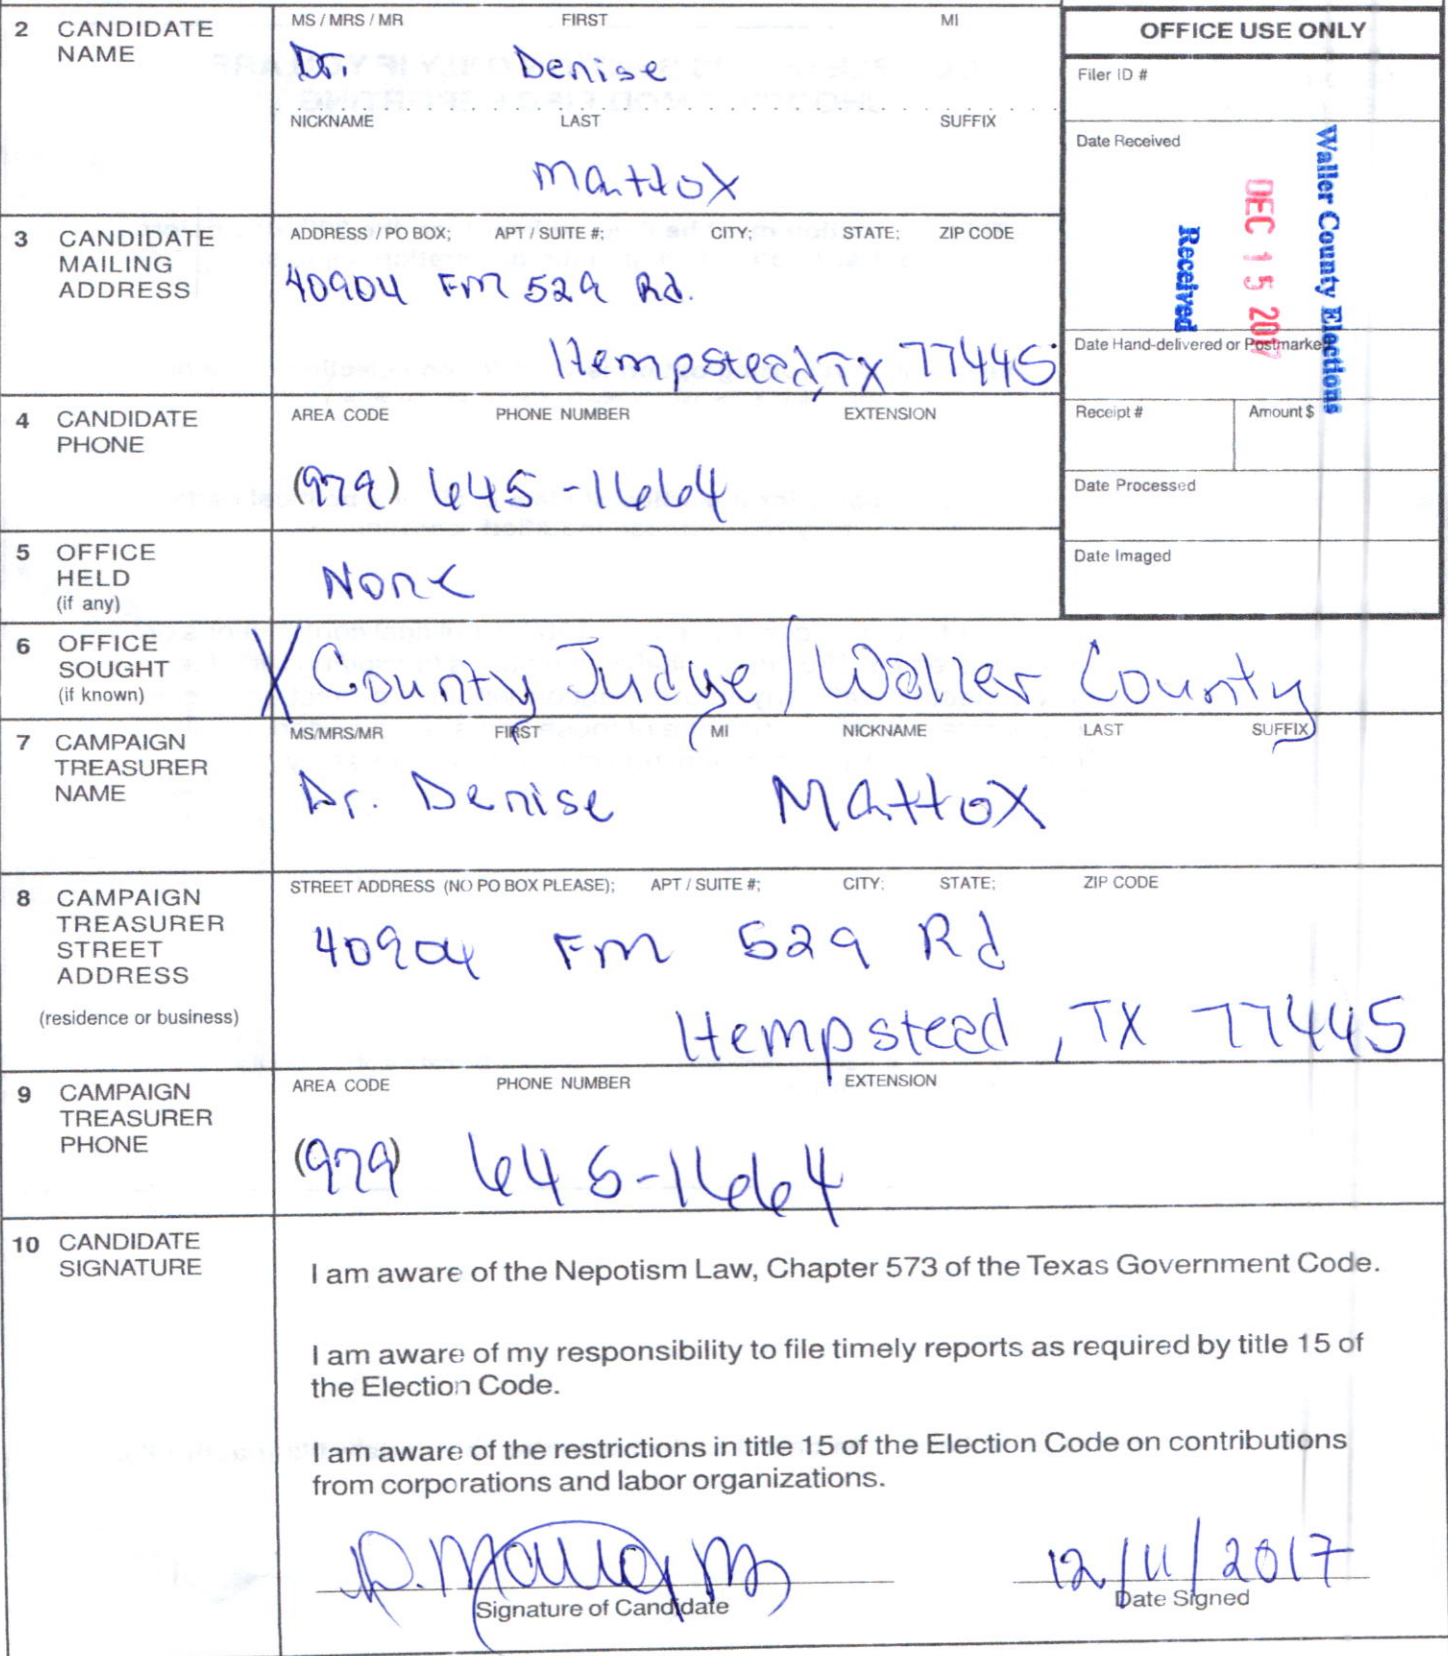 2 CANDIDATE NAME
MS / MRS / MR FIRST MI
Dr. Denise
NICKNAME LAST SUFFIX
Mattox
OFFICE USE ONLY
Filer ID #
Date Received
Waller County Elections
DEC 15 2017
Received
Date Hand-delivered or Postmarked
Receipt # Amount $
Date Processed
Date Imaged
3 CANDIDATE MAILING ADDRESS
ADDRESS / PO BOX; APT / SUITE #; CITY; STATE; ZIP CODE
40904 FM 529 Rd.
Hempstead, TX 77445
4 CANDIDATE PHONE
AREA CODE PHONE NUMBER EXTENSION
(979) 645-1664
5 OFFICE HELD (if any)
None
6 OFFICE SOUGHT (if known)
X County Judge / Waller County
7 CAMPAIGN TREASURER NAME
MS/MRS/MR FIRST MI NICKNAME LAST SUFFIX
Dr. Denise Mattox
8 CAMPAIGN TREASURER STREET ADDRESS
(residence or business)
STREET ADDRESS (NO PO BOX PLEASE); APT / SUITE #; CITY; STATE; ZIP CODE
40904 FM 529 Rd
Hempstead, TX 77445
9 CAMPAIGN TREASURER PHONE
AREA CODE PHONE NUMBER EXTENSION
(979) 645-1664
10 CANDIDATE SIGNATURE
I am aware of the Nepotism Law, Chapter 573 of the Texas Government Code.
I am aware of my responsibility to file timely reports as required by title 15 of
the Election Code.
I am aware of the restrictions in title 15 of the Election Code on contributions
from corporations and labor organizations.
12/11/2017
Signature of Candidate Date Signed